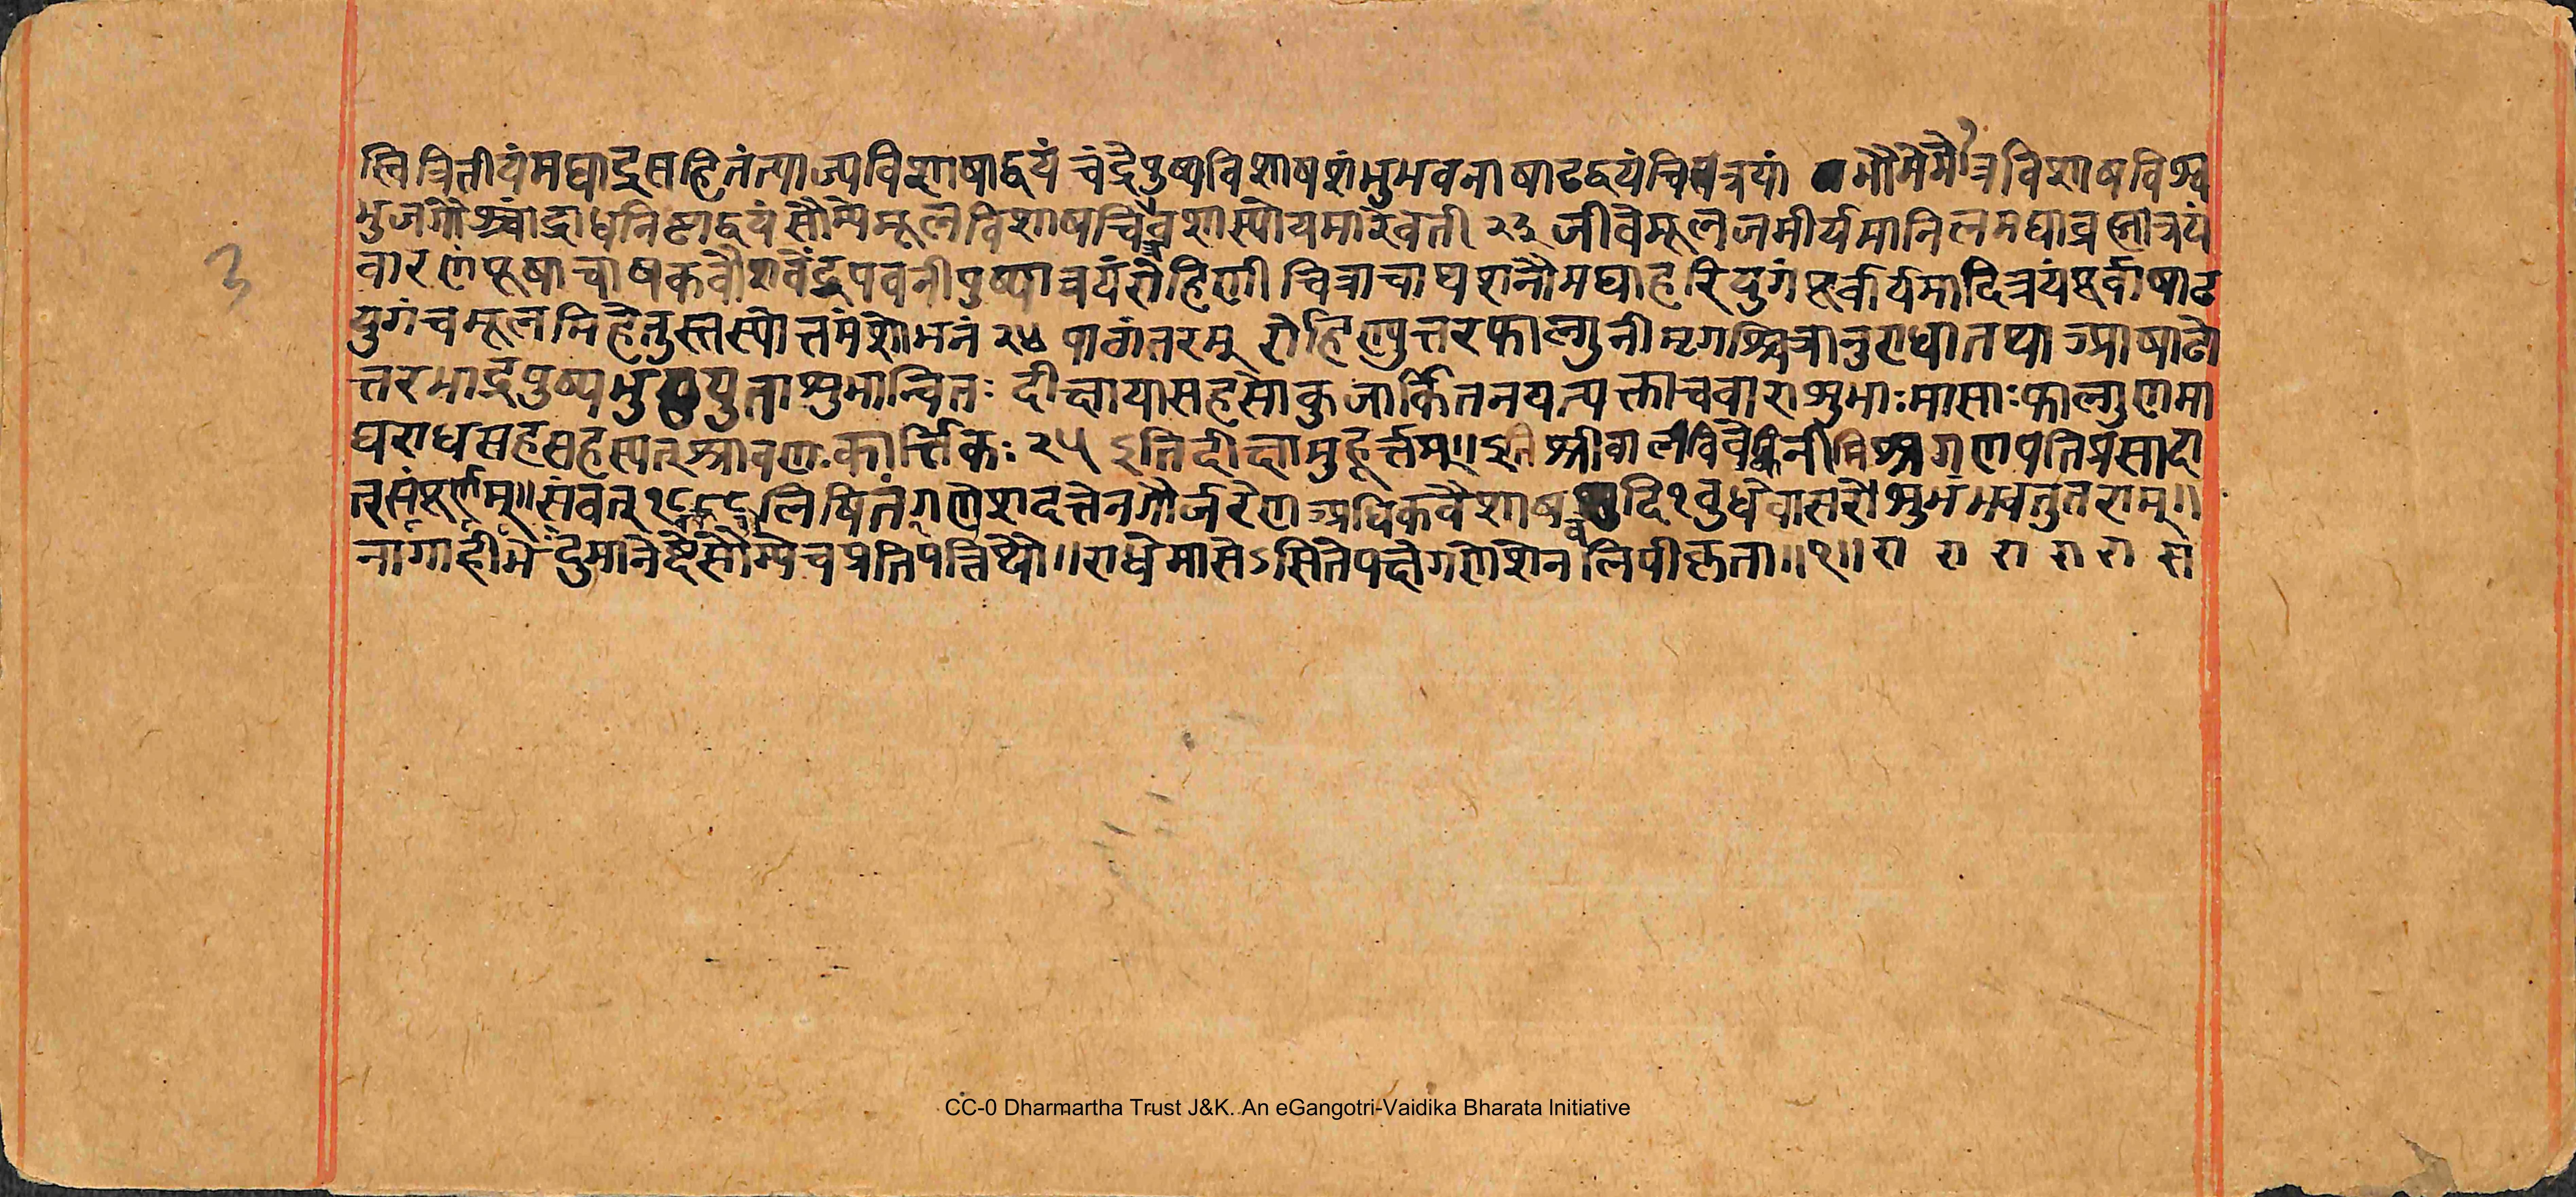 त्वित्रितीयंमघाद्रसहितंत्याज्यविशाषाद्वयं चंद्रेपुष्यविशाषशंभुभवनाषाटद्वयंचित्रयां भौमेमैत्रविशाषविश्व
भुजगोश्चांद्राधनिष्टाद्वयंसौम्येमूलविशाष शास्पोयमारेवती २३ जीवेमूलजमीर्यमानिलमघा त्रयं
वारणंपूषाचाषकवौशवेंद्रपवनीपुष्यात्रयंरोहिणी चित्राचाघशनौमघाहरियुगंपूर्वार्यमादित्रयंपूर्वाषाढ
युगंचमूलमिहेतुस्तस्योत्तमंशोभनं २४ पाठांतरम् रोहिण्युत्तरफाल्गुनीमृगशिचत्रानुराधातथाआषाढो
त्तरमाद्रपुष्यभु युताशुभान्वितः दीक्षायासहसाकुजार्कितनयत्यक्ताचवाराशुभाःमासाःफाल्गुणमा
घराधसहसहस्यतश्रावणःकार्त्तिकः २५ इतिदीक्षामुहूर्त्तम्॥इति श्रीबाल मिश्रगणपतिप्रसादा
त्संपूर्णम्॥संवत् १८८८ लिषितंगणेशदत्तेनगौर्जरेणअधिकवैशाषव दि१बुधेवासरोशुभंभवतुतराम्॥
नागाहीभेंदुमानेष्टेसौम्येचप्रतिपत्तिथौ॥राधेमासेऽसितेपक्षेगणेशेनलिपीकृता॥१॥रा रा रा रा रा रा
3
CC-0 Dharmartha Trust J&K. An eGangotri-Vaidika Bharata Initiative